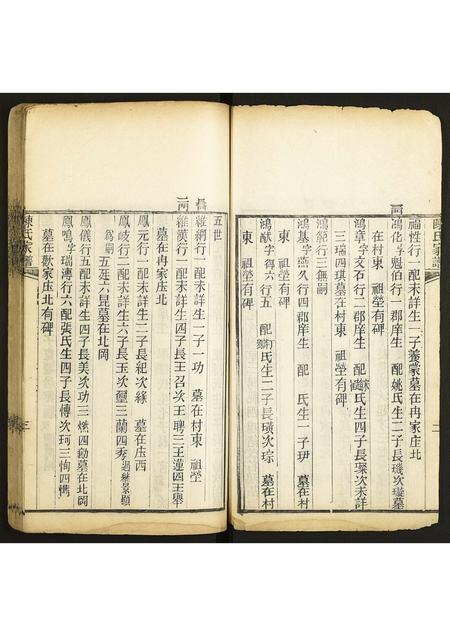 陳氏家譜
福性行一配未詳生一子養蒙墓在冉家庄北
鴻化字魁伯行一郡庠生 配姚氏生二子長璣次璇墓
在村東 祖塋有碑
鴻章字文石行二郡庠生 配 氏生四子長琛次未詳
三瑞四琪墓在村東 祖塋有碑
鴻範行三無嗣
鴻基字燕久行四郡庠生 配 氏生一子玬 墓在村
東 祖塋有碑
鴻猷字得六行五 配 氏生二子長璜次琮 墓在村
東 祖塋有碑
二
五世
維綱行一配未詳生一子一功 墓在村東 祖塋
維漢行二配未詳生四子長王召次王聘三王蓮四王舉
墓在冉家庄北
鳳元行一配未詳生二子長紀次緣 墓在庄西
鳳岐行二配未詳生六子長玉次 三蘭四秀過繼景顯
為嗣五延六昆墓在北岡
鳳儀行五配未詳生四子長美次功三燃四勐墓在北岡
鳳鳴字瑞溥行六配張氏生四子長傳次珂三恂四儁
墓在歡家庄北有碑
陳氏家譜
三